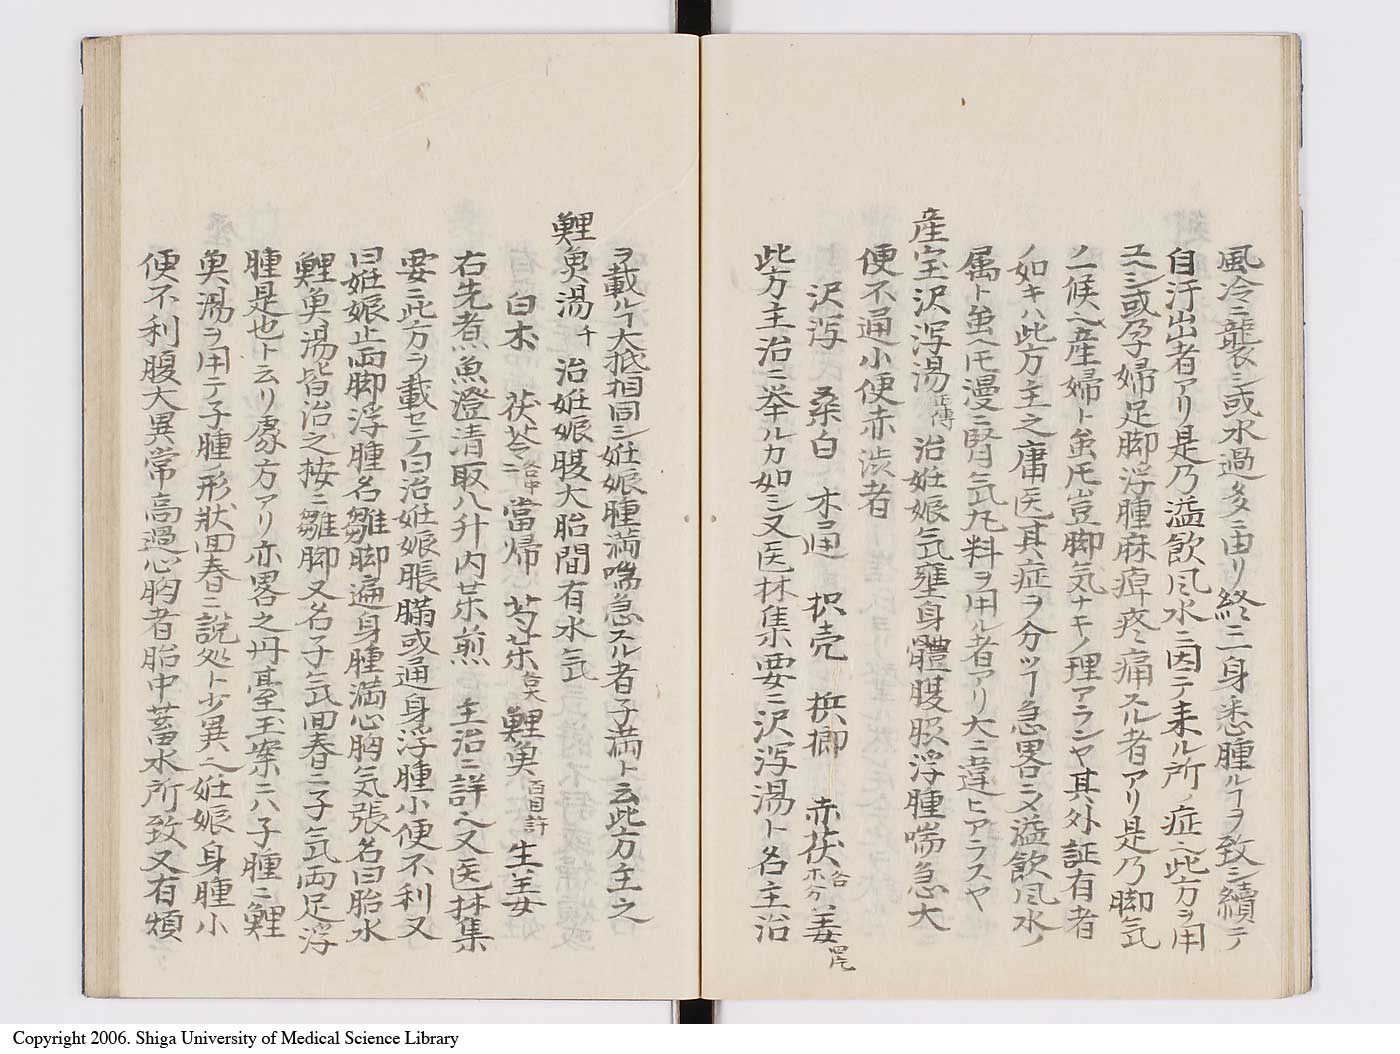 風冷ニ襲シ或水過多ニ由リ終ニ一身悉腫ルヿヲ致シ續テ
自汗出者アリ是乃溢飲風水ニ因テ来ル所ノ症ニ此方ヲ用
ユヘシ或孕婦足脚浮腫麻痺疼痛スル者アリ是乃脚气
ノ候ヘ産婦ト虽𪜈豈脚気ナキノ理アランヤ其外証有者
ノ如キハ此方主之庸医其症ヲ分ツヿ急畧ニメ溢飲風水ノ
属ト虽ヘ𪜈漫ニ腎气丸料ヲ用ル者アリ大ニ違ヒアラスヤ
産宝沢瀉湯正傳 治妊娠气壅身體腹脹浮腫喘急大
便不通小便赤渋者
沢瀉 桑白 木通 枳壳 梹榔 赤茯各等分 姜四片
此方主治ニ挙ルカ如シ又医林集要ニ沢瀉湯ト名主治
ヲ載ルヿ大抵相同シ妊娠腫満喘急スル者子満ト云此方主之
鯉魚湯千 治妊娠腹大胎間有水气
白朮 茯苓各中 當帰 芍薬各大 鯉魚百目許 生姜
右先煮魚澄清取八升内薬煎 主治ニ詳ヘ又医林集
要ニ此方ヲ載セテ曰治妊娠脹脳或通身浮腫小便不利又
曰妊娠止両脚浮腫名雛脚遍身腫満心胸气張名曰胎水
鯉魚湯皆治之按ニ雛脚又名子气回春ニ子气両足浮
腫是也ト云リ處方アリ亦畧之丹臺玉案ニハ子腫ニ鯉
魚湯ヲ用テ子腫ノ形狀回春ニ説処ト少異ヘ妊娠身腫小
便不利腹大異常高過心胸者胎中蓄水所致又有煩
Copyright 2006. Shiga University of Medical Science Library